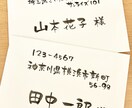 山本花子 様
123-4567
神奈川県横浜市新町
56-99
田中一郎 様